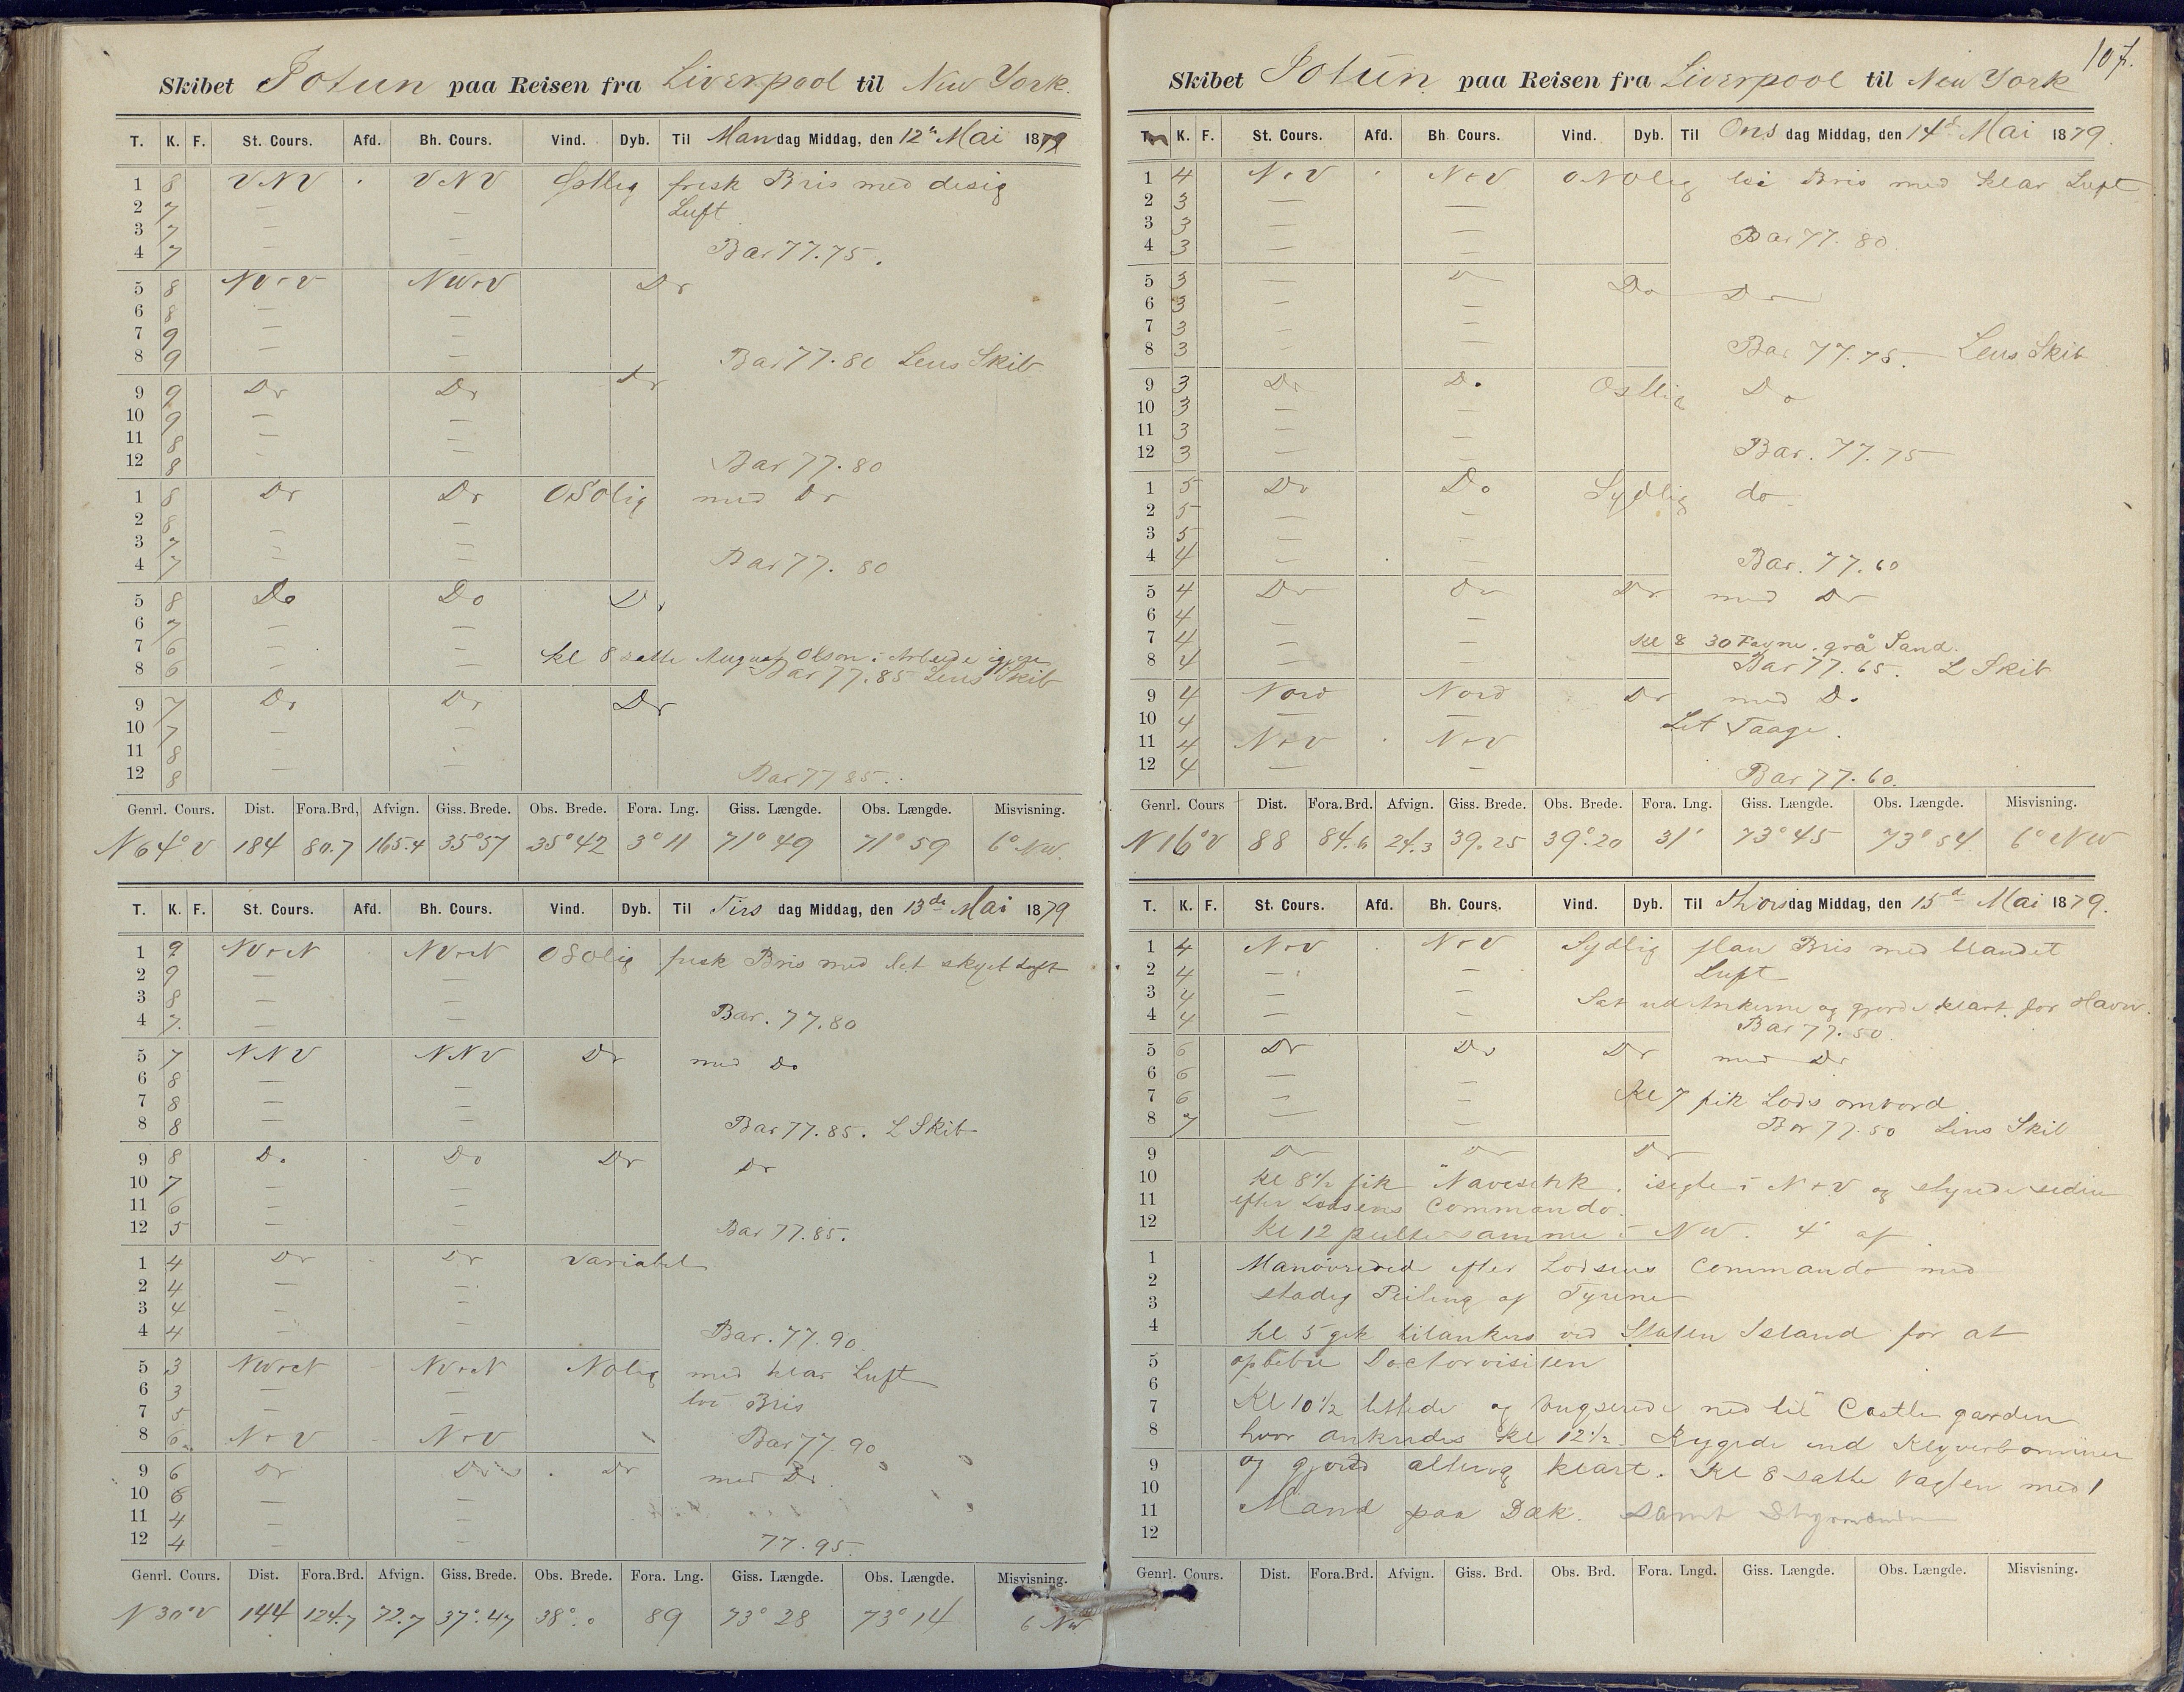 Skibet Jotun paa Reisen fra Liverpool til New York.
T. K. F. St. Cours. Afd. Bh. Cours. Vind. Dyb. Til Mandag Middag, den 12te Mai 1879
1 8 VNV VNV Østlig frisk Bris med disig
2 7 — — Luft
3 7 — —
4 7 — — Bar 77.75.
5 8 NV-V NW-V Do
6 8 — —
7 9 — —
8 9 — — Bar 77.80 Lens Skib
9 9 Do Do Do
10 9 — —
11 8 — —
12 8 — — Bar 77.80
1 8 Do Do OSOlig med Do
2 8 — —
3 7 — —
4 7 — — Bar 77.80
5 8 Do Do Do
6 7 — —
7 6 — — Kl 8 satte August Olson i Arbeide igjen
8 6 — — Bar 77.85 Lens Skib
9 7 Do Do Do
10 7 — —
11 8 — —
12 8 — — Bar 77 85.
Genrl. Cours. Dist. Fora.Brd, Afvign. Giss. Brede. Obs. Brede. Fora. Lng. Giss. Længde. Obs. Længde. Misvisning.
N 64° V 184 80.7 165.4 35°57 35°42 3°11 71°49 71°59 6° NW.
T. K. F. St. Cours. Afd. Bh. Cours. Vind. Dyb. Til Tirsdag Middag, den 13de Mai 1879.
1 9 NV-N NV-N OSOlig frisk Bris med let skyet Luft
2 9 — —
3 8 — —
4 7. — — Bar. 77.80
5 7 NNV NNV Do med Do
6 8 — —
7 8 — —
8 8 — — Bar 77.85. L Skib
9 8 Do Do Do Do
10 7 — —
11 6 — —
12 5 — — Bar 77.85.
1 4 Do Do Variabel
2 4 — —
3 4 — —
4 4 — — Bar. 77.90.
5 3 NW-N NV-N NOlig med klar Luft
6 3 — — løi Bris
7 5 — —
8 6 N-V N-V Bar 77.90
9 6 Do Do Do med Do.
10 6 — —
11 4 — —
12 4 — — 77.95.
Genrl. Cours. Dist. Fora.Brd. Afvign. Giss. Brede. Obs. Brede. Fora. Lng. Giss. Længde. Obs. Længde. Misvisning.
N 30° V 144 124.7 72.7 37°.47 38°.0 89 73° 28 73° 14 6 NW
107.
Skibet Jotun paa Reisen fra Liverpool til New York
T. K. F. St. Cours. Afd. Bh. Cours. Vind. Dyb. Til Onsdag Middag, den 14de Mai 1879.
1 4 N-V N-V ONOlig løi Bris med klar Luft
2 3 — —
3 3 — —
4 3 — — Bar 77.80.
5 3 — — Do Do
6 3 — —
7 3 — —
8 3 — — Bar 77.75. Lens Skib
9 3 Do Do Ostlig Do
10 3 — —
11 3 — —
12 3 — — Bar. 77.75
1 5 Do Do Sydlig do
2 5 — —
3 5 — —
4 4 — — Bar. 77.60
5 4 Do Do Do med Do
6 4 — —
7 4 — — Kl 8 30 Favne. grå Sand.
8 4 — — Bar 77.65. L Skib
9 4 Nord Nord Do med Do
10 4 — — Let Taage.
11 4 N-V N-V
12 4 — — Bar 77.60.
Genrl. Cours Dist. Fora.Brd. Afvign. Giss. Brede. Obs. Brede. Fora. Lng. Giss. Længde. Obs. Længde. Misvisning.
N 16° V 88 84.6 24.3 39.25 39°.20 31' 73°45 73°54 6° NW
T. K. F. St. Cours. Afd. Bh. Cours. Vind. Dyb. Til Thorsdag Middag, den 15d Mai 1879.
1 4 N-V N-V Sydlig flau Bris med blandet
2 4 — — Luft
3 4 — — Sat ud Ankerne og gjorde klart for Havn.
4 4 — — Bar 77.50.
5 6 Do Do Do med Do
6 6 — —
7 6 — — Kl 7 fik Lods ombord
8 7 — — Bar 77.50 Lens Skib
9 Do Do Do
10 Kl 8½ fik Navesink. isigte i N-V og styrede siden
11 efter Lodsens Commando.
12 Kl 12 peilte samme i NW. 4' af
1 Manøvrerede efter Lodsens Commando med
2 stadig Peiling af Fyrene
3
4 Kl. 5 gik tilankers ved Staten Island for at
5 opbebie Doctorvisiten
6
7 Kl 10½ lettede og bugserede ned til Castle garden
8 hvor ankredes Kl 12½. Rygede ind Klyverbommen
9 og gjorde alting klart. Kl 8 satte Vagten med 1
10
11 Mand paa Dæk. samt Styrmanden
12
Genrl. Cours. Dist. Fora.Brd. Afvign. Giss. Brd. Obs. Brd. Fora. Lngd. Giss. Længde. Obs. Længde. Misvisning.